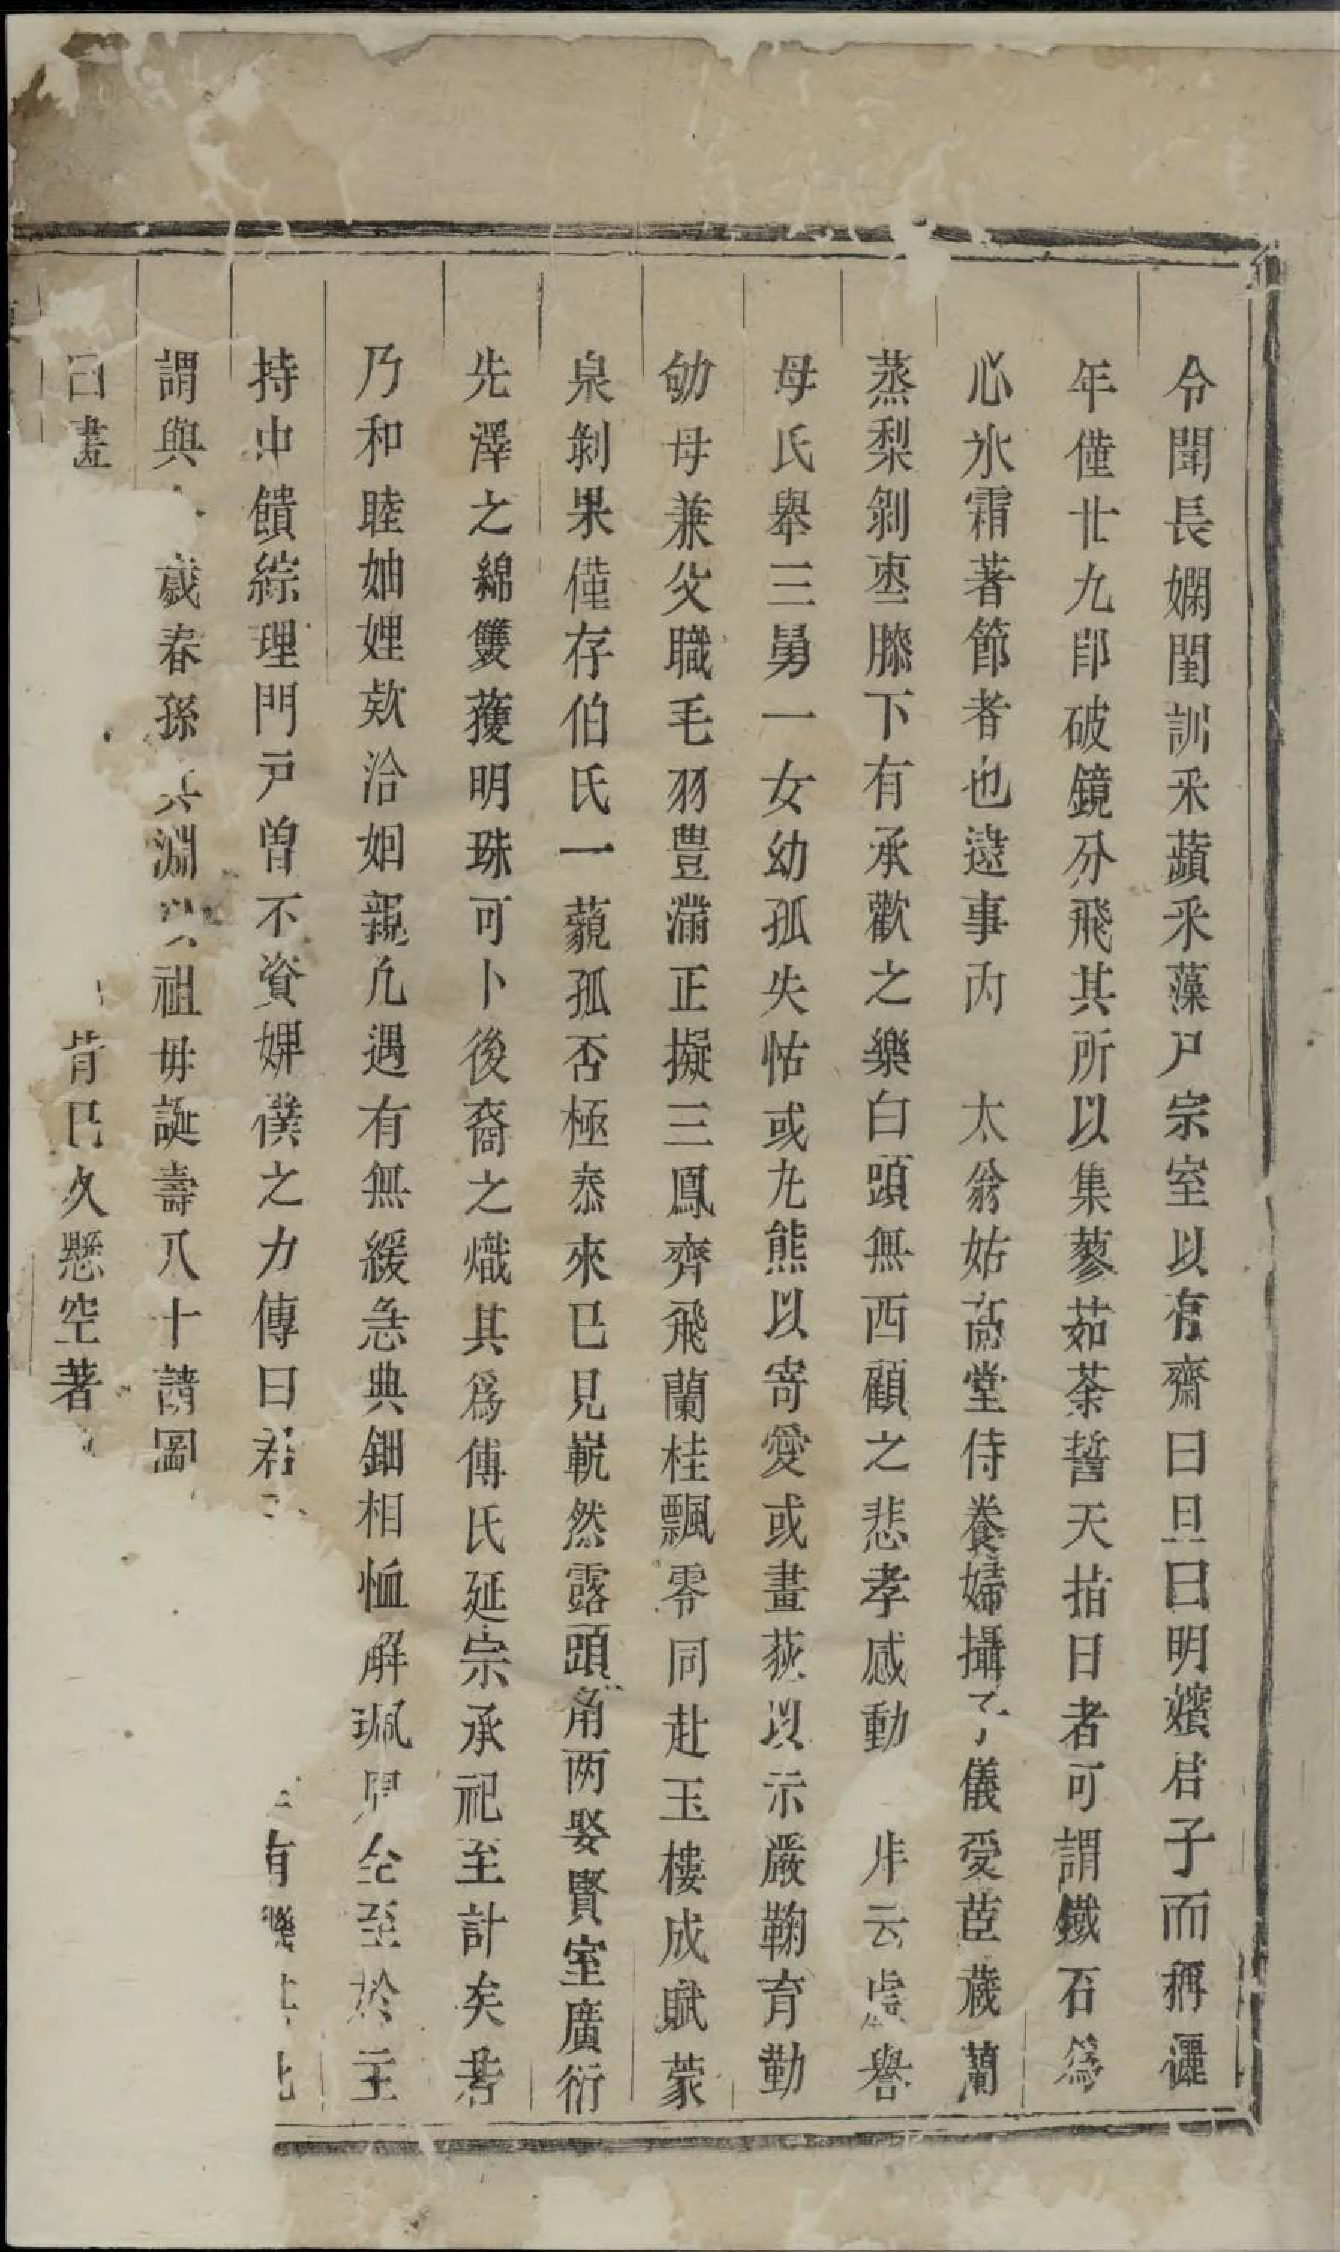 令聞長嫻閨訓采蘋采藻尸宗室以有齋曰旦曰明嬪君子而稱儷
年僅廿九卽破鏡分飛其所以集蓼茹荼誓天指日者可謂鐵石爲
心氷霜著節者也逺事內 太翁姑高堂侍養婦攝子儀愛茝蔵蘭
蒸梨剝棗膝下有承歡之樂白頭無西顧之悲孝感動 非云虛譽
母氏舉三男一女幼孤失怙或丸熊以寄愛或畫荻以示嚴鞠育勤
劬母兼父職毛羽豊滿正擬三鳳齊飛蘭桂飄零同赴玉樓成賦蒙
泉剝果僅存伯氏一藐孤否極泰來已見嶄然露頭角两娶賢室廣衍
先澤之綿雙蒦明珠可卜後裔之熾其爲傅氏延宗承祀至計矣若
乃和睦妯娌欵洽姻親凢遇有無緩急典鈿相恤解珮 全至於主
持中饋綜理門戸曽不資婢僕之力傳曰君 有
謂與 歲春孫 淵以祖毋誕壽八十請圖
曰畫 肯已久懸空著